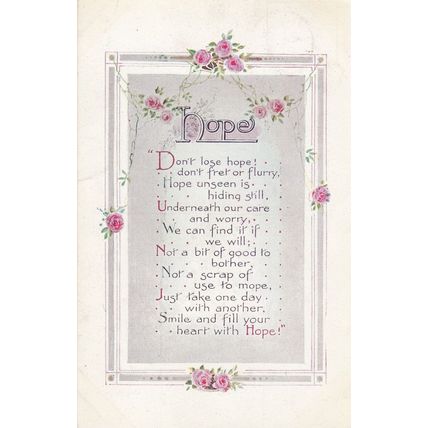 Hope
"Don't lose hope!
don't fret or flurry,
Hope unseen is
hiding still,
Underneath our care
and worry,
We can find it if
we will;
Not a bit of good to
bother,
Not a scrap of
use to mope,
Just take one day
with another,
Smile and fill your
heart with Hope!"